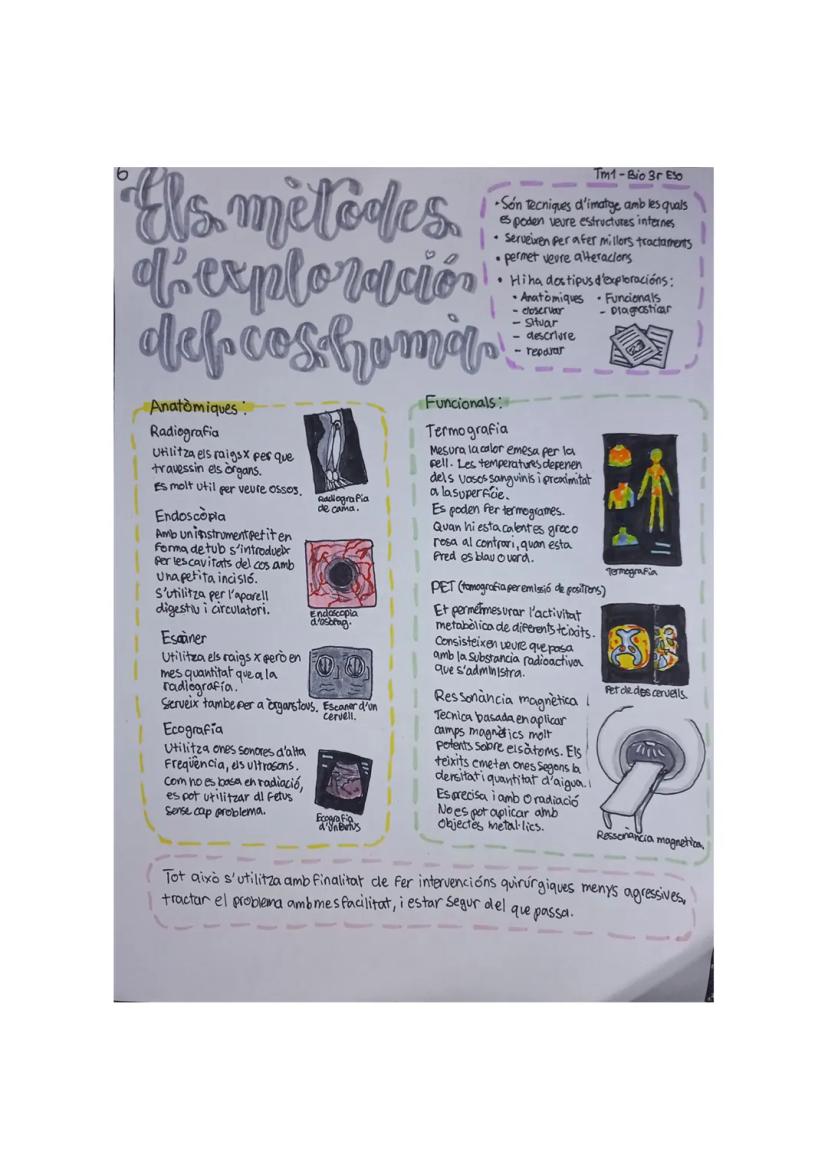 6
Tm1 - Bio 3r ESO
Els mètodes
d'exploración
del cos humà
• Són tecniques d'imatge amb les quals
es poden veure estructures internes
• Serveixen per a fer millors tractaments
• permet veure alteracions
• Hi ha dos tipus d'exploracións:
• Anatòmiques
- observar
- Situar
- descriure
- reparar
• Funcionals
- Diagnosticar
Anatòmiques:
Radiografia
Utilitza els raigs x per que
travessin els òrgans.
Es molt util per veure ossos.
Radiografia
de cama.
Endoscòpia
Amb un instrument petit en
forma de tub s'introdueix
per les cavitats del cos amb
una petita incisió.
S'utilitza per l'aparell
digestiu i circulatori.
Endoscopia
d'esòfag.
Escàner
Utilitza els raigs x però en
mes quantitat que a la
radiografía.
Serveix tambe per a òrgans tous.
Escaner d'un
cervell.
Ecografia
Utilitza ones sonores d'alta
Freqüència, els ultrasons.
Com no es basa en radiació,
es pot utilitzar al Fetus
Sense cap problema.
Ecografia
d'un Fetus
Funcionals:
Termografia
Mesura la calor emesa per la
pell. Les temperatures depenen
dels vasos sanguinis i proximitat
a la superfície.
Es poden Fer termogrames.
Quan hi esta calent es groc o
rosa al contrari, quan esta
Fred es blau o verd.
Termografia
PET (tomografia per emissió de positrons)
Et permet mesurar l'activitat
metabòlica de diferents teixits.
Consisteix en veure que pasa
amb la substancia radioactiva
que s'administra.
Pet de dos cervells.
Ressonància magnètica
Tecnica basada en aplicar
camps magnètics molt
potents sobre els àtoms. Els
teixits emeten ones segons la
densitat i quantitat d'aigua.
Es precisa i amb 0 radiació
No es pot aplicar amb
objectes metal·lics.
Ressonància magnètica.
Tot això s'utilitza amb finalitat de fer intervencións quirúrgiques menys agressives,
tractar el problema amb mes facilitat, i estar segur del que passa.